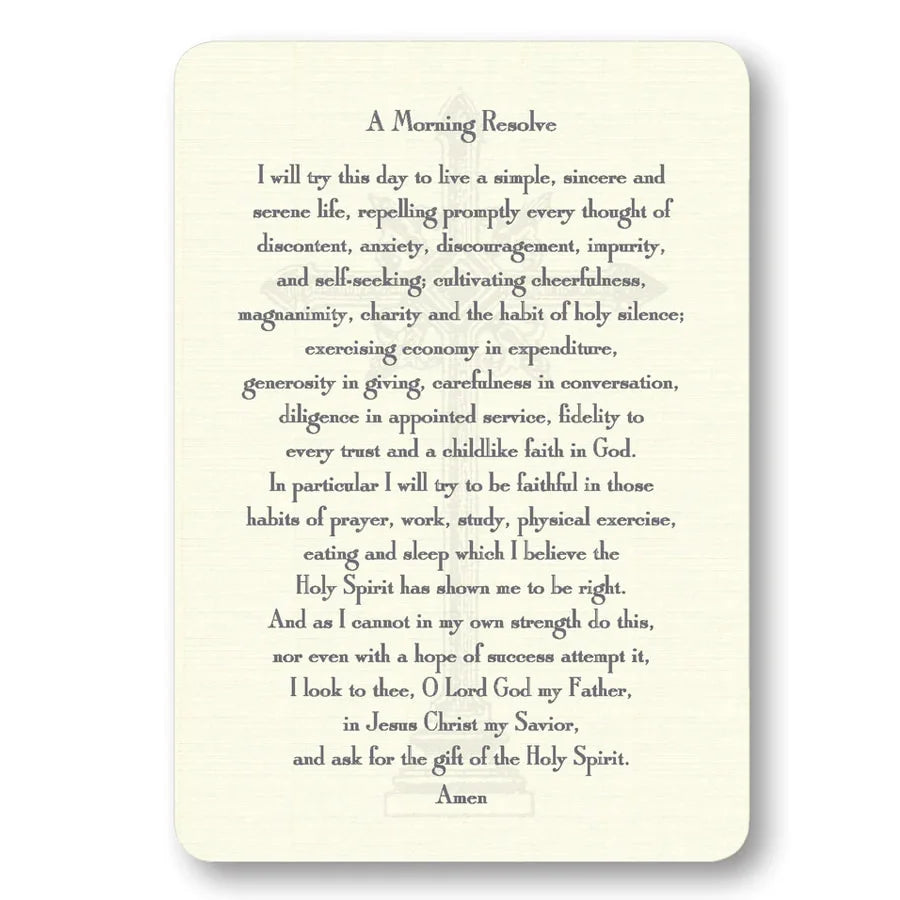 A Morning Resolve
I will try this day to live a simple, sincere and
serene life, repelling promptly every thought of
discontent, anxiety, discouragement, impurity,
and self-seeking; cultivating cheerfulness,
magnanimity, charity and the habit of holy silence;
exercising economy in expenditure,
generosity in giving, carefulness in conversation,
diligence in appointed service, fidelity to
every trust and a childlike faith in God.
In particular I will try to be faithful in those
habits of prayer, work, study, physical exercise,
eating and sleep which I believe the
Holy Spirit has shown me to be right.
And as I cannot in my own strength do this,
nor even with a hope of success attempt it,
I look to thee, O Lord God my Father,
in Jesus Christ my Savior,
and ask for the gift of the Holy Spirit.
Amen